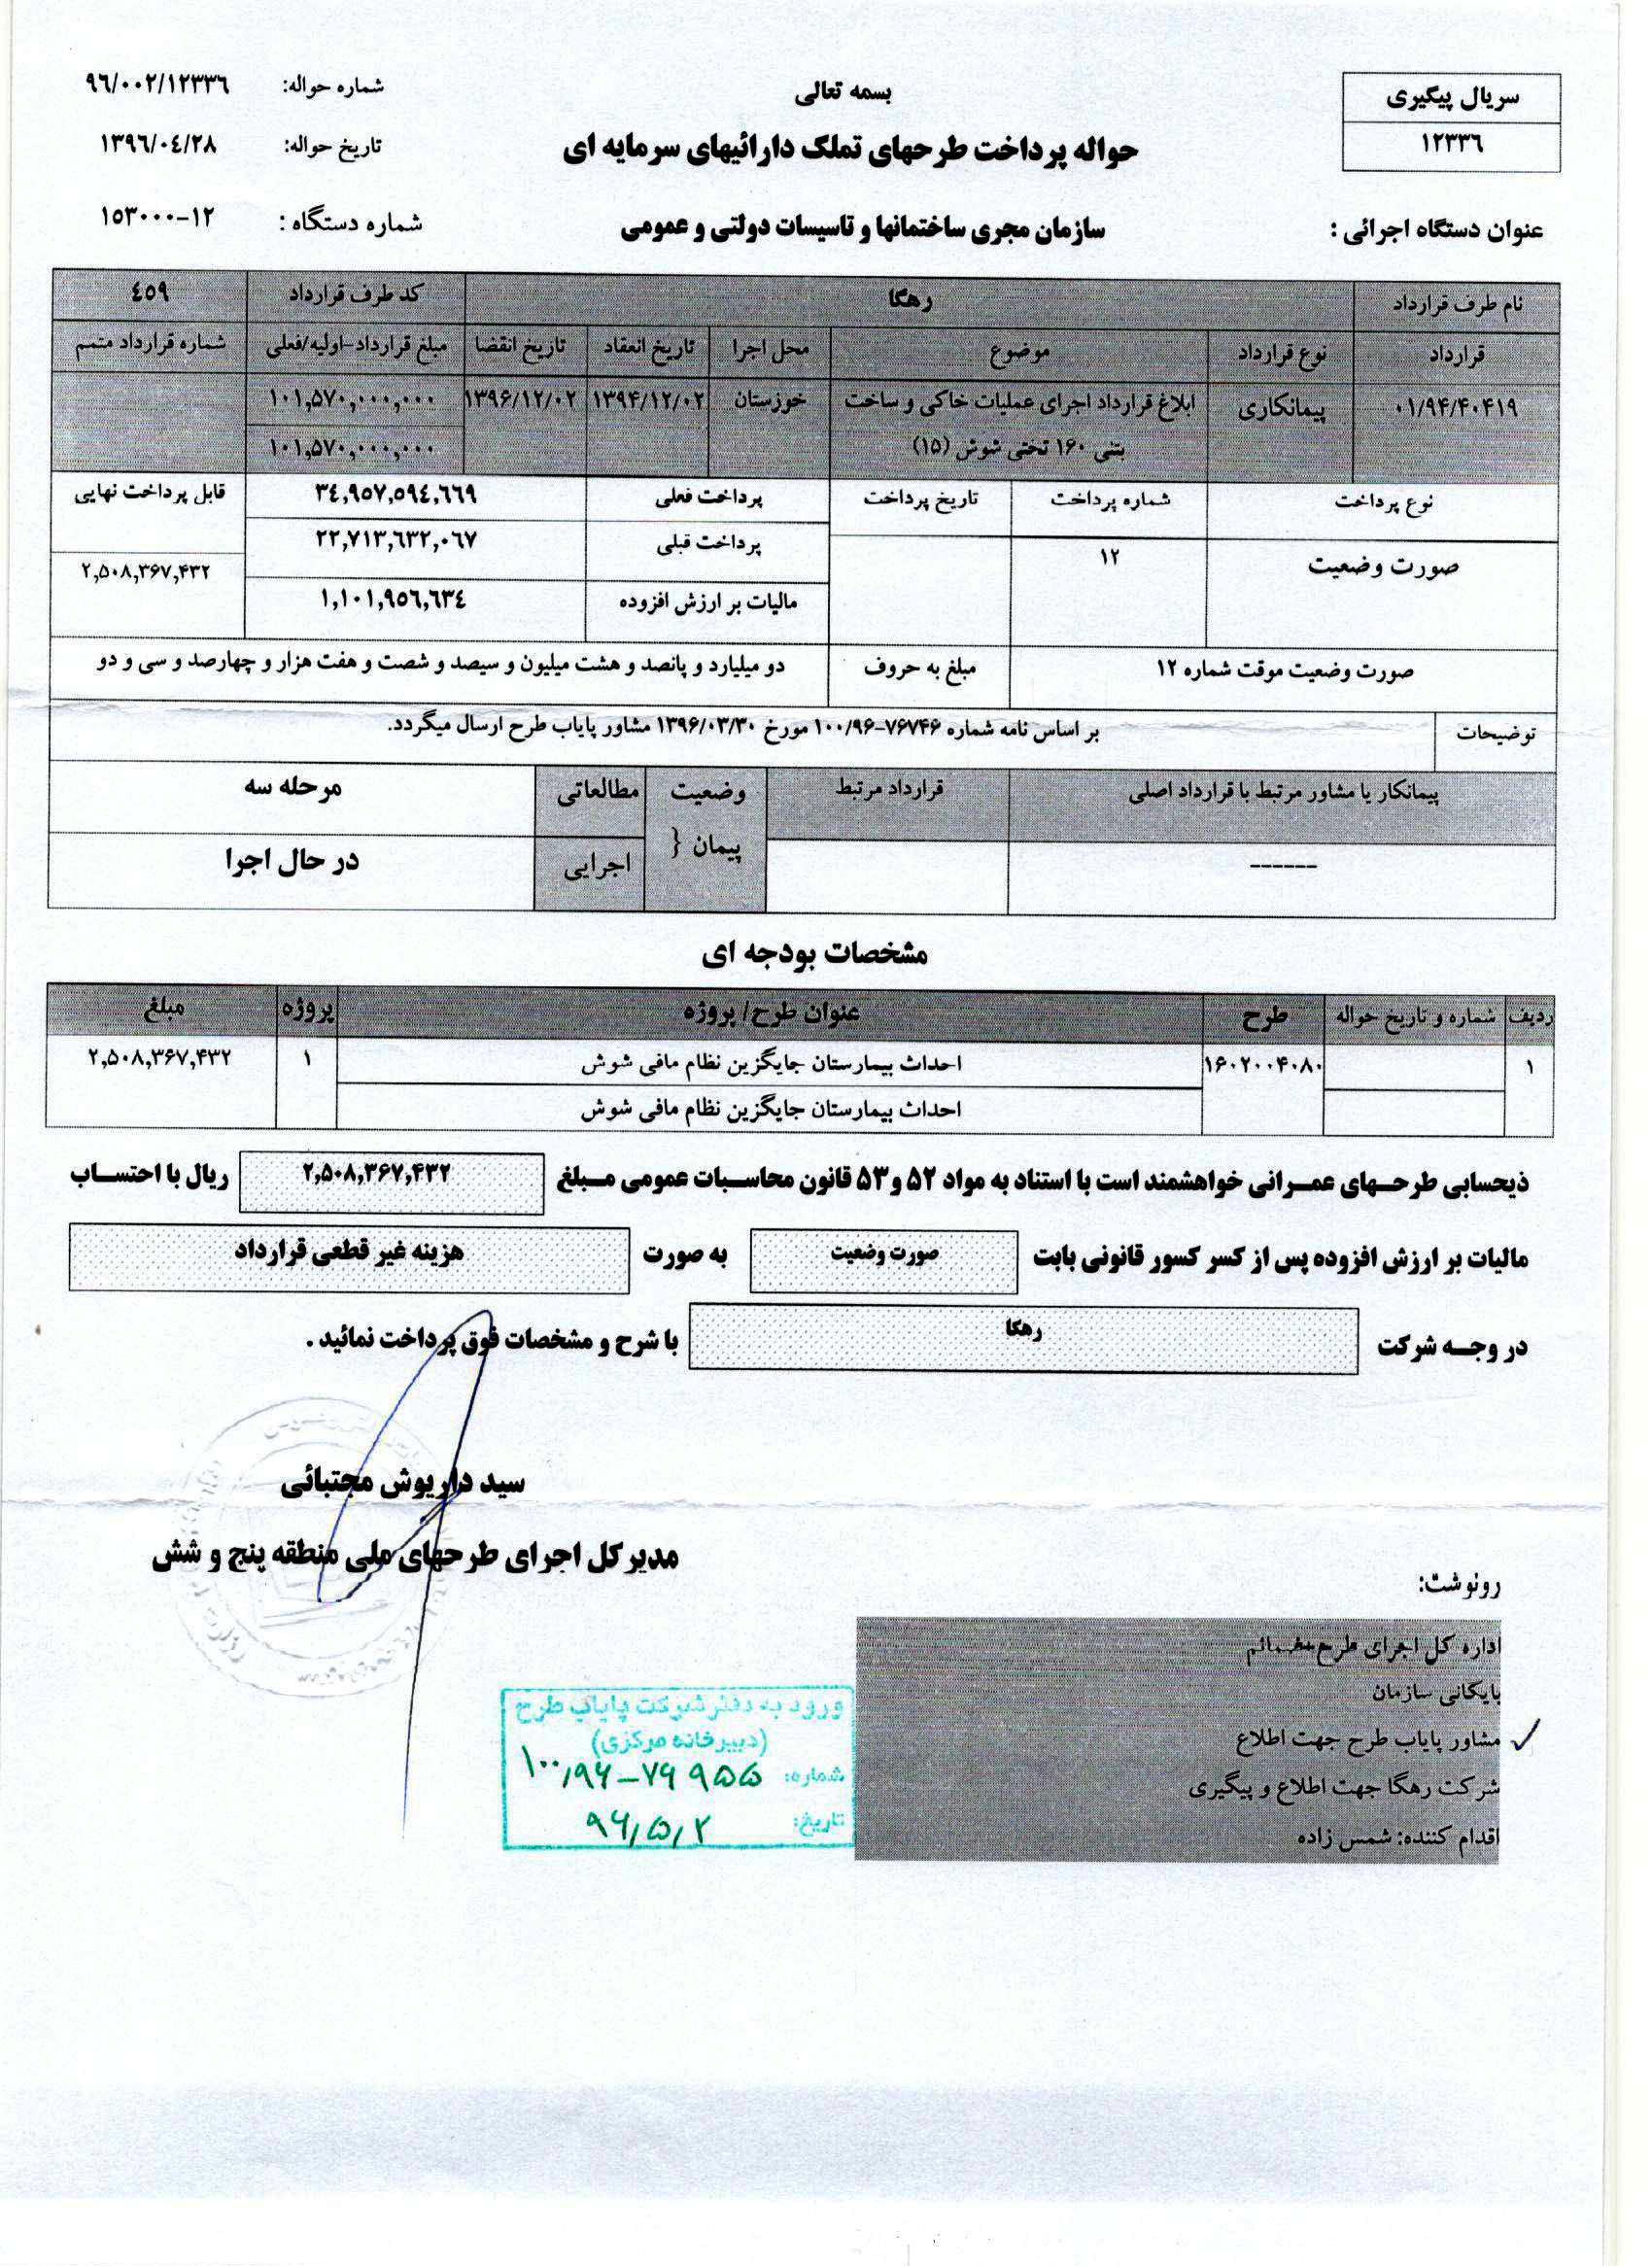 بسمه تعالی
سریال پیگیری
۱۲۳۳٦
شماره حواله: ۹٦/۰۰۲/۱۲۳۳٦
حواله پرداخت طرحهای تملک دارائیهای سرمایه ای
تاریخ حواله: ۱۳۹٦/۰٤/۲۸
عنوان دستگاه اجرائی : سازمان مجری ساختمانها و تاسیسات دولتی و عمومی شماره دستگاه : ۱۵۳۰۰۰-۱۲
نام طرف قرارداد رهگا کد طرف قرارداد ٤٥٩
قرارداد نوع قرارداد موضوع محل اجرا تاریخ انعقاد تاریخ انقضا مبلغ قرارداد-اولیه/فعلی شماره قرارداد متمم
۰۱/۹۴/۴۰۴۱۹ پیمانکاری ابلاغ قرارداد اجرای عملیات خاکی و ساخت خوزستان ۱۳۹۴/۱۲/۰۲ ۱۳۹۶/۱۲/۰۲ ۱۰۱,۵۷۰,۰۰۰,۰۰۰
بتنی ۱۶۰ تختی شوش (۱۵) ۱۰۱,۵۷۰,۰۰۰,۰۰۰
نوع پرداخت شماره پرداخت تاریخ پرداخت پرداخت فعلی ۳٤,۹۵۷,۵۹٤,٦٦۹ قابل پرداخت نهایی
صورت وضعیت ۱۲ پرداخت قبلی ۲۲,۷۱۳,٦۳۲,۰٦۷ ۲,۵۰۸,۳۶۷,۴۳۲
مالیات بر ارزش افزوده ۱,۱۰۱,۹۵٦,٦۳٤
صورت وضعیت موقت شماره ۱۲ مبلغ به حروف دو میلیارد و پانصد و هشت میلیون و سیصد و شصت و هفت هزار و چهارصد و سی و دو
توضیحات بر اساس نامه شماره ۷۶۷۴۶-۱۰۰/۹۶ مورخ ۱۳۹۶/۰۳/۳۰ مشاور پایاب طرح ارسال میگردد.
پیمانکار یا مشاور مرتبط با قرارداد اصلی قرارداد مرتبط وضعیت مطالعاتی مرحله سه
------ پیمان { اجرایی در حال اجرا
مشخصات بودجه ای
ردیف شماره و تاریخ حواله طرح عنوان طرح/ پروژه پروژه مبلغ
۱ ۱۶۰۲۰۰۴۰۸۰ احداث بیمارستان جایگزین نظام مافی شوش ۱ ۲,۵۰۸,۳۶۷,۴۳۲
احداث بیمارستان جایگزین نظام مافی شوش
ذیحسابی طرحهای عمرانی خواهشمند است با استناد به مواد ۵۲ و ۵۳ قانون محاسبات عمومی مبلغ ۲,۵۰۸,۳۶۷,۴۳۲ ریال با احتساب
مالیات بر ارزش افزوده پس از کسر کسور قانونی بابت صورت وضعیت به صورت هزینه غیر قطعی قرارداد
در وجه شرکت رهگا با شرح و مشخصات فوق پرداخت نمائید .
سید داریوش مجتبائی
مدیر کل اجرای طرحهای ملی منطقه پنج و شش
رونوشت:
اداره کل اجرای طرح
بایگانی سازمان
مشاور پایاب طرح جهت اطلاع
شرکت رهگا جهت اطلاع و پیگیری
اقدام کننده: شمس زاده
ورود به دفتر شرکت پایاب طرح
(دبیرخانه مرکزی)
شماره: ۱۰۰/۹۶-۷۶۹۵۵
تاریخ: ۹۶/۵/۲